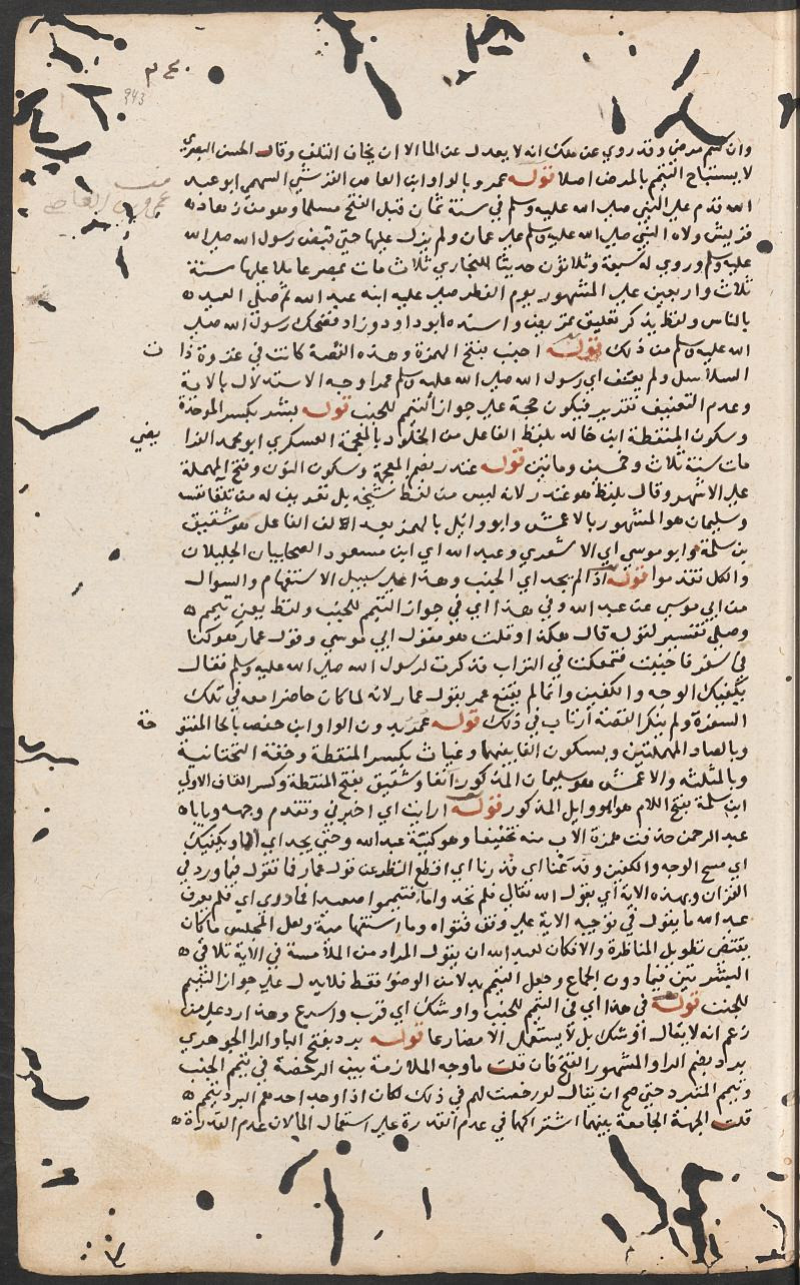 ٣٤٠
943
وان كنتم مرضى وقد روي عن مالك انه لا يعدل عن الماء الا ان يخاف التلف وقال الحسن البصري
لا يستباح التيمم بالمرض اصلا قوله عمرو بالواو ابن العاص القرشي السهمي ابو عبد
الله قدم على النبي صلى الله عليه وسلم في سنة ثمان قبل الفتح مسلما وهو من زهاد
قريش ولاه النبي صلى الله عليه وسلم على عمان ولم يزل عليها حتى قبض رسول الله صلى الله
عليه وسلم وروي له سبعة وثلاثون حديثا للبخاري ثلاث مات بمصر عاملا عليها سنة
ثلاث واربعين على المشهور يوم الفطر صلى عليه ابنه عبد الله ثم صلى العيد
بالناس ولفظ يذكر تعليق بتمريض واسنده ابو داود وزاد فضحك رسول الله صلى
الله عليه وسلم من ذلك قوله اجنب بفتح الهمزة وهذه القصة كانت في غزوة ذا ت
السلاسل ولم يعنف اي رسول الله صلى الله عليه وسلم عمرا وجه الاستدلال بالاية
وعدم التعنيف تقرير فيكون حجة على جواز التيمم للجنب قوله بشر بكسر الموحدة
وسكون المنقطة ابن خالد بلفظ الفاعل من الخلود بالمعجمة العسكري ابو محمد الفرا يضي
مات سنة ثلاث وخمسين ومائتين قوله غندر بضم المعجمة وسكون النون وفتح المهملة
على الاشهر وقال بلفظ هو غندر لانه ليس من لفظ شيخه بل تعريف له من تلقا نفسه
وسليمان هو المشهور بالاعمش وابو وائل بالهمز بعد الالف الفاعل هو شقيق
بن سلمة وابو موسى اي الاشعري وعبد الله اي ابن مسعود الصحابيان الجليلان
والكل تقدموا قوله اذا لم يجد اي الجنب وهذا على سبيل الاستفهام والسوال
من ابي موسى عن عبد الله وفي هذا اي في جواز التيمم للجنب ولفظ يعني تيمم
وصلى تفسير لقوله قال هكذا وقلت هو مقول ابي موسى وقول عمار هو كنا
في سفر فاجنبت فتمعكت في التراب فذكرت لرسول الله صلى الله عليه وسلم فقال
يكفيك الوجه والكفين وانما لم يقنع عمر بقول عمار لانه لما كان حاضرا معه في تلك
السفرة ولم يذكر القصة ارتاب في ذلك قوله عمر بدون الواو ابن حفص بالحا المفتو حة
وبالصاد المهملتين وبسكون الفا بينهما وغياث بكسر المنقطة وخفة التحتانية
وبالمثلثه والاعمش هو سليمان المذكور انفا وشقيق بفتح المنقطة وكسر القاف الاولى
ابن سلمة بفتح اللام هو ابو وايل المذكور قوله ارايت اي اخبرني وتقدم وجهه ويابا
عبد الرحمن حذفت همزة الاب منه تخفيفا وهو كنية عبد الله وحتى يجد اي الماء ويكفيك
اي مسح الوجه والكفين وفدعنا اي فذرنا اي اقطع النظر عن قول عمار فما تقول فيما ورد في
القران وبهذه الاية اي بقول الله تعالى فلم تجدوا ماء فتيمموا صعيدا فما دري اي فلم يعرف
عبد الله ما يقول في توجيه الاية على وفق فتواه وما استفهامية ولعل المجلس ما كان
يقتضي تطويل المناظرة والا فكان لعبد الله ان يقول المراد من الملامسة في الاية تلاقي
البشرتين فيما دون الجماع وجعل التيمم بدلا من الوضوء فقط فلا يدل على جواز التيمم
للجنب قوله في هذا اي في التيمم للجنب واوشك اي قرب واسرع وهذا رد على من
زعم انه لا يقال اوشك بل لا يستعمل الا مضارعا قوله برد بفتح الباء والراء الجوهري
برد بضم الراء والمشهور الفتح فان قلت ما وجه الملازمة بين الرخصة في تيمم الجنب
وتيمم المتبرد حتى صح ان يقال لو رخصت لهم في ذلك لكان اذا وجد احدهم البرد تيمم
قلت الجهة الجامعة بينهما اشتراكهما في عدم القدرة على استعمال الماء لان عدم القدرة